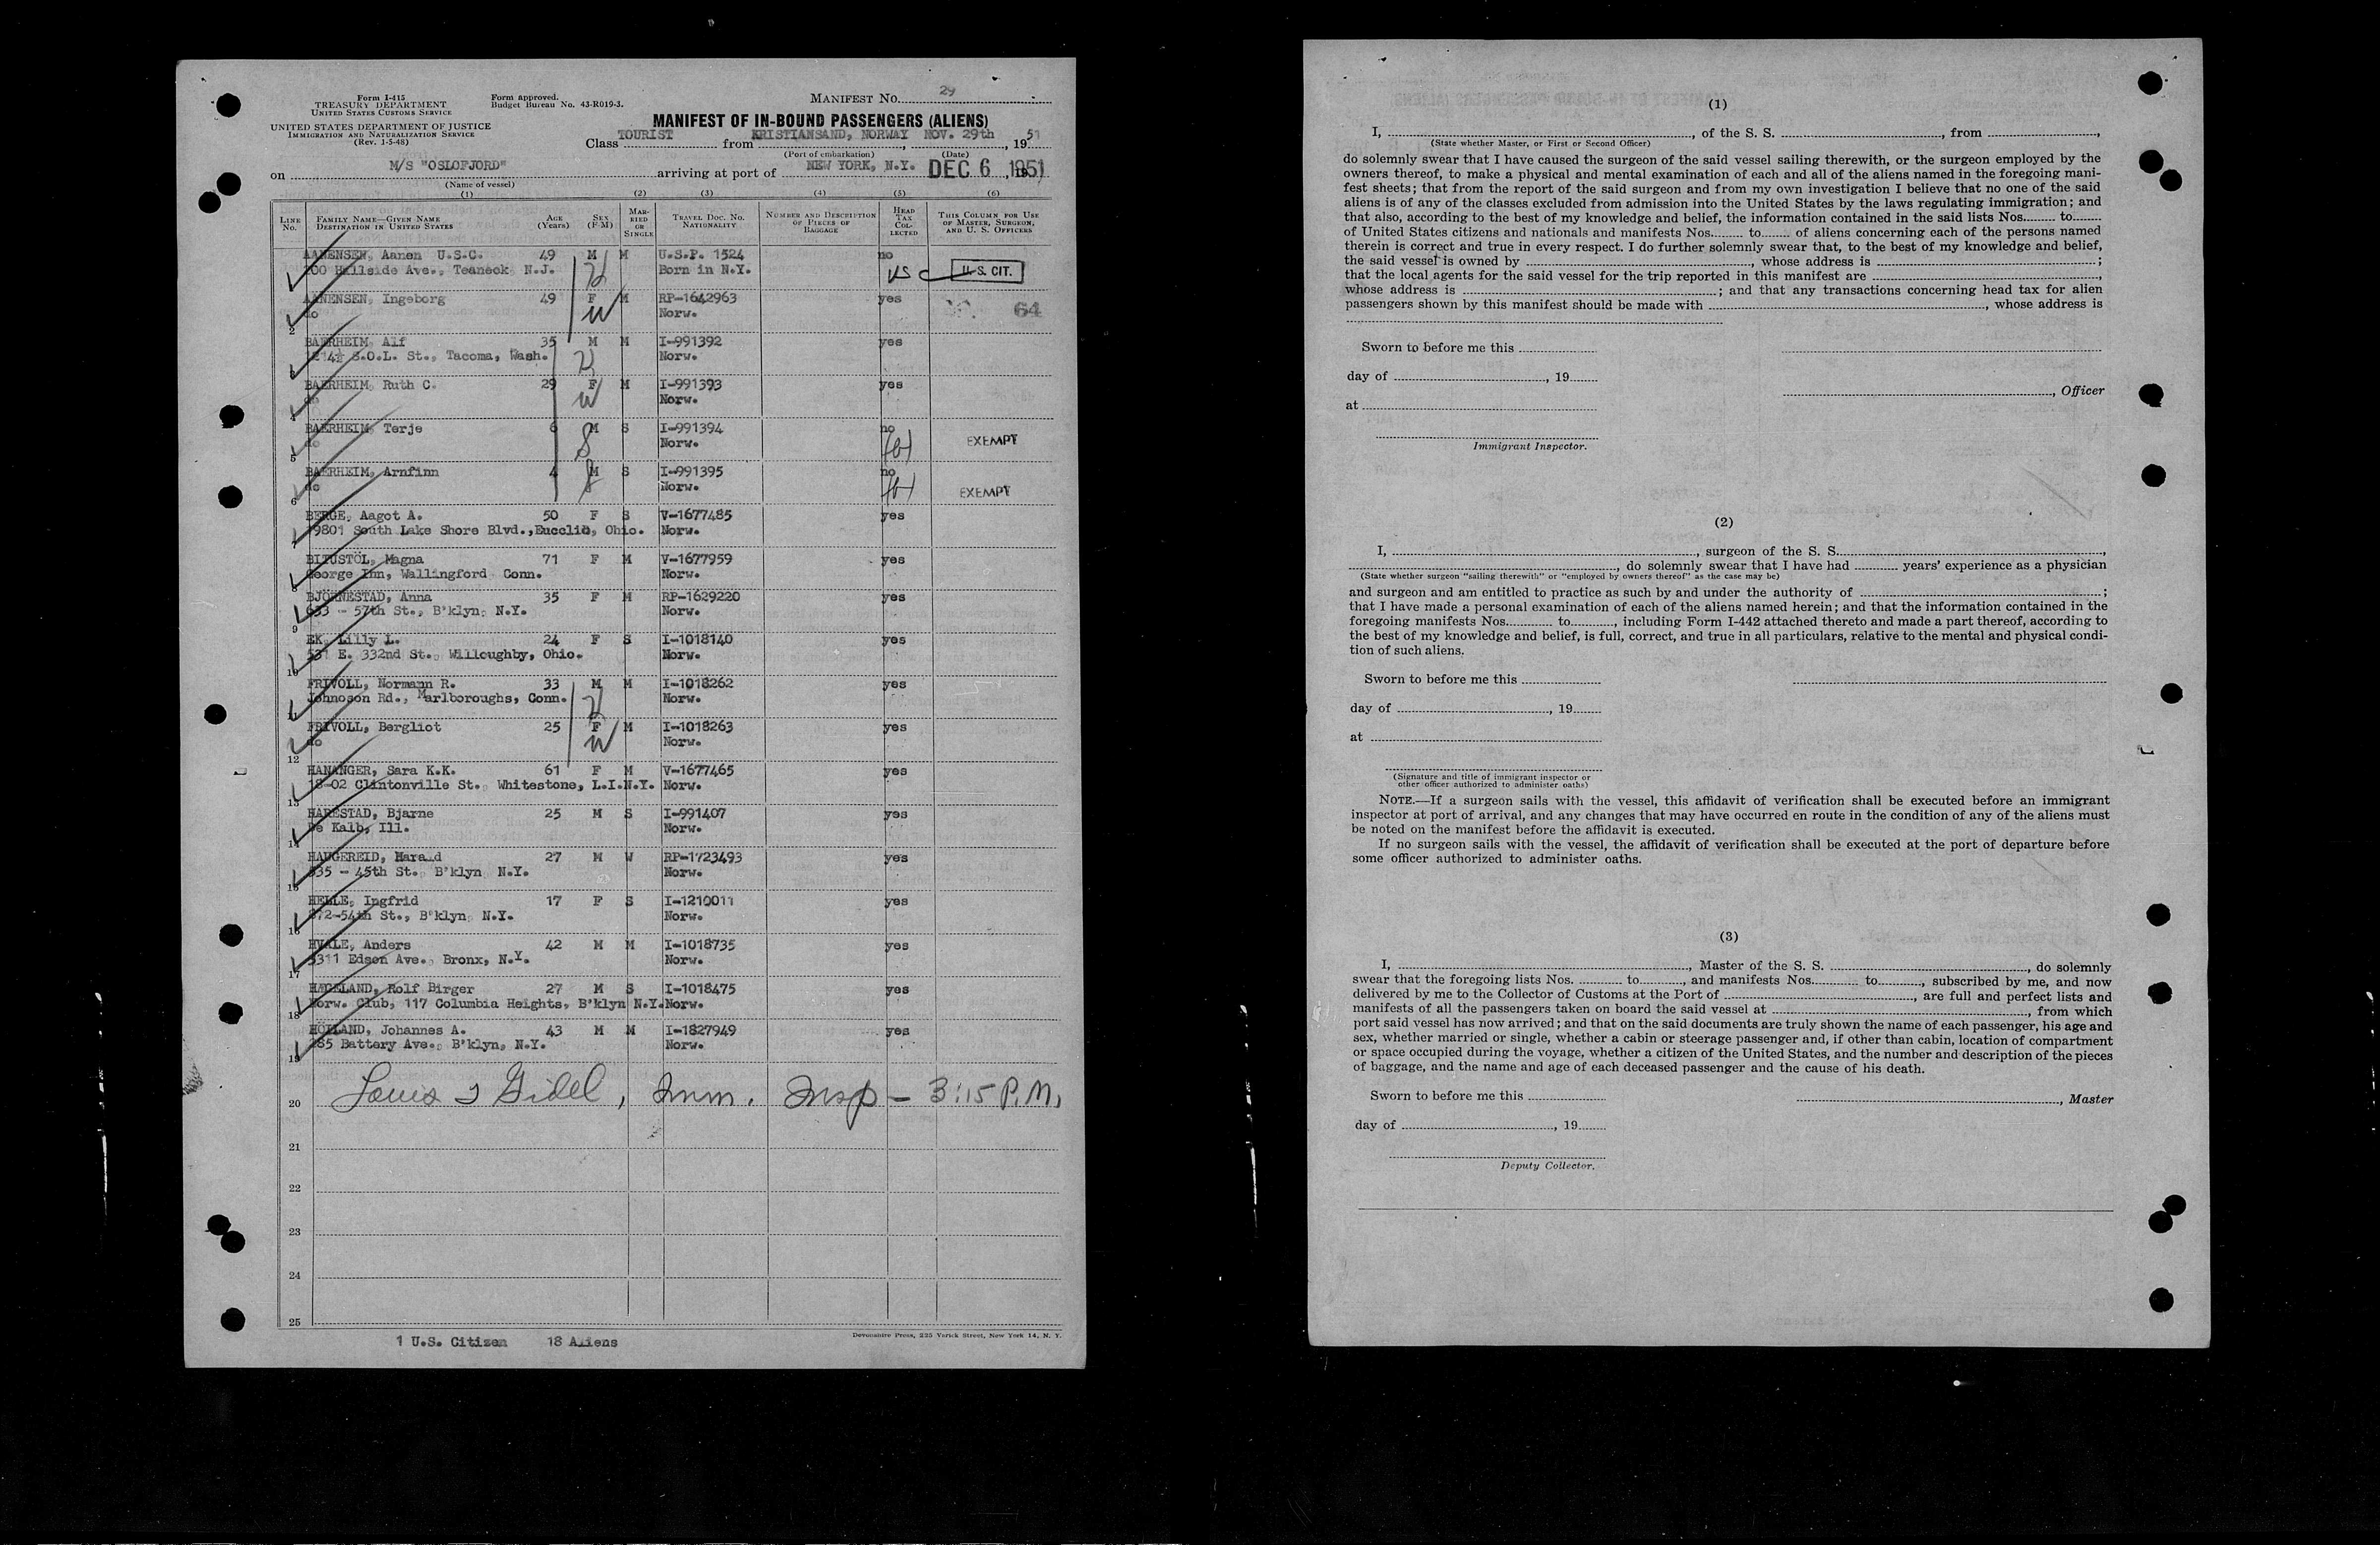 Form I-415
TREASURY DEPARTMENT
UNITED STATES CUSTOMS SERVICE
UNITED STATES DEPARTMENT OF JUSTICE
IMMIGRATION AND NATURALIZATION SERVICE
(Rev. 1-5-48)
Form approved.
Budget Bureau No. 43-R019-3.
MANIFEST No. 29
MANIFEST OF IN-BOUND PASSENGERS (ALIENS)
Class TOURIST from KRISTIANSAND, NORWAY NOV. 29th, 1951
(Port of embarkation) (Date)
on M/S "OSLOFJORD" arriving at port of NEW YORK, N.Y. DEC 6 1951
(Name of vessel)
(1) (2) (3) (4) (5) (6)
LINE No. FAMILY NAME—GIVEN NAME DESTINATION IN UNITED STATES AGE (Years) SEX (F-M) MARRIED OR SINGLE TRAVEL DOC. NO. NATIONALITY NUMBER AND DESCRIPTION OF PIECES OF BAGGAGE HEAD TAX COLLECTED THIS COLUMN FOR USE OF MASTER, SURGEON, AND U. S. OFFICERS
AANENSEN, Aanen U.S.C. 49 M M U.S.P. 1524 no
Hillside Ave., Teaneck N.J. Born in N.Y. US C U.S. CIT.
AANENSEN, Ingeborg 49 F M RP-1642963 yes 64
2 do W Norw.
BAERHEIM, Alf 35 M M I-991392 yes
S.O.L. St., Tacoma, Wash. Norw.
BAERHEIM, Ruth C. 29 F M I-991393 yes
do W Norw.
BAERHEIM, Terje 6 M S I-991394 no
5 do Norw. EXEMPT
BAERHEIM, Arnfinn 4 M S I-991395 no
6 do Norw. EXEMPT
BERGE, Aagot A. 50 F S V-1677485 yes
9801 South Lake Shore Blvd., Eucclid, Ohio. Norw.
BLIUSTÖL, Magna 71 F M V-1677959 yes
George Inn, Wallingford Conn. Norw.
BJÖRNESTAD, Anna 35 F M RP-1629220 yes
9 633 - 57th St., B'klyn, N.Y. Norw.
EK, Lilly L. 24 F S I-1018140 yes
10 531 E. 332nd St., Willoughby, Ohio. Norw.
FRIVOLL, Normann R. 33 M M I-1018262 yes
11 Johnoson Rd., Marlboroughs, Conn. Norw.
FRIVOLL, Bergliot 25 F M I-1018263 yes
12 do W Norw.
HANANGER, Sara K.K. 61 F M V-1677465 yes
13 18-02 Clintonville St., Whitestone, L.I.N.Y. Norw.
HARESTAD, Bjarne 25 M S I-991407 yes
14 De Kalb, Ill. Norw.
HAUGEREID, Harald 27 M W RP-1723493 yes
15 535 - 45th St., B'klyn N.Y. Norw.
HELLE, Ingfrid 17 F S I-1210011 yes
16 872-54th St., B'klyn, N.Y. Norw.
HVALE, Anders 42 M M I-1018735 yes
17 3311 Edson Ave., Bronx, N.Y. Norw.
HÆGELAND, Rolf Birger 27 M S I-1018475 yes
18 Norw. Club, 117 Columbia Heights, B'klyn N.Y. Norw.
HÖLLAND, Johannes A. 43 M M I-1827949 yes
19 285 Battery Ave., B'klyn, N.Y. Norw.
20 Louis J Gidel, Imm. Insp — 3:15 P.M.
21
22
23
24
25
1 U.S. Citizen 18 Aliens
Devonshire Press, 225 Varick Street, New York 14, N. Y.
(1)
I, , of the S. S. , from ,
(State whether Master, or First or Second Officer)
do solemnly swear that I have caused the surgeon of the said vessel sailing therewith, or the surgeon employed by the
owners thereof, to make a physical and mental examination of each and all of the aliens named in the foregoing mani-
fest sheets; that from the report of the said surgeon and from my own investigation I believe that no one of the said
aliens is of any of the classes excluded from admission into the United States by the laws regulating immigration; and
that also, according to the best of my knowledge and belief, the information contained in the said lists Nos. to
of United States citizens and nationals and manifests Nos. to of aliens concerning each of the persons named
therein is correct and true in every respect. I do further solemnly swear that, to the best of my knowledge and belief,
the said vessel is owned by , whose address is ;
that the local agents for the said vessel for the trip reported in this manifest are ,
whose address is ; and that any transactions concerning head tax for alien
passengers shown by this manifest should be made with , whose address is
Sworn to before me this
day of , 19
, Officer
at
Immigrant Inspector.
(2)
I, , surgeon of the S. S. ,
, do solemnly swear that I have had years' experience as a physician
(State whether surgeon "sailing therewith" or "employed by owners thereof" as the case may be)
and surgeon and am entitled to practice as such by and under the authority of ;
that I have made a personal examination of each of the aliens named herein; and that the information contained in the
foregoing manifests Nos. to , including Form I-442 attached thereto and made a part thereof, according to
the best of my knowledge and belief, is full, correct, and true in all particulars, relative to the mental and physical condi-
tion of such aliens.
Sworn to before me this
day of , 19
at
(Signature and title of immigrant inspector or
other officer authorized to administer oaths)
NOTE.—If a surgeon sails with the vessel, this affidavit of verification shall be executed before an immigrant
inspector at port of arrival, and any changes that may have occurred en route in the condition of any of the aliens must
be noted on the manifest before the affidavit is executed.
If no surgeon sails with the vessel, the affidavit of verification shall be executed at the port of departure before
some officer authorized to administer oaths.
(3)
I, , Master of the S. S. , do solemnly
swear that the foregoing lists Nos. to , and manifests Nos. to , subscribed by me, and now
delivered by me to the Collector of Customs at the Port of , are full and perfect lists and
manifests of all the passengers taken on board the said vessel at , from which
port said vessel has now arrived; and that on the said documents are truly shown the name of each passenger, his age and
sex, whether married or single, whether a cabin or steerage passenger and, if other than cabin, location of compartment
or space occupied during the voyage, whether a citizen of the United States, and the number and description of the pieces
of baggage, and the name and age of each deceased passenger and the cause of his death.
Sworn to before me this
, Master
day of , 19
Deputy Collector.